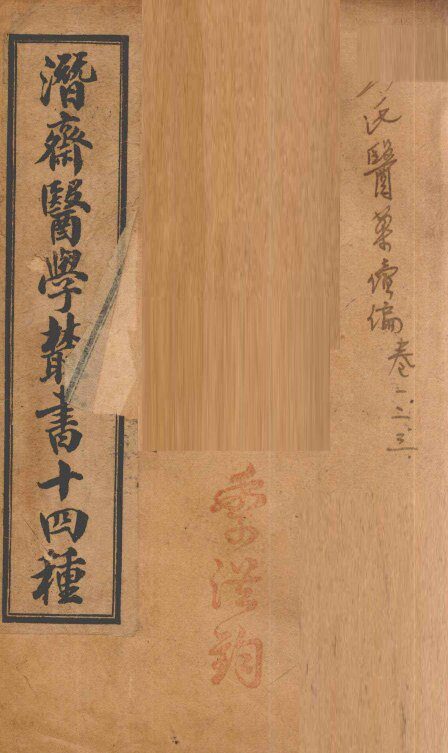 氏醫案續編卷一.二.三.
潛齋醫學叢書十四種